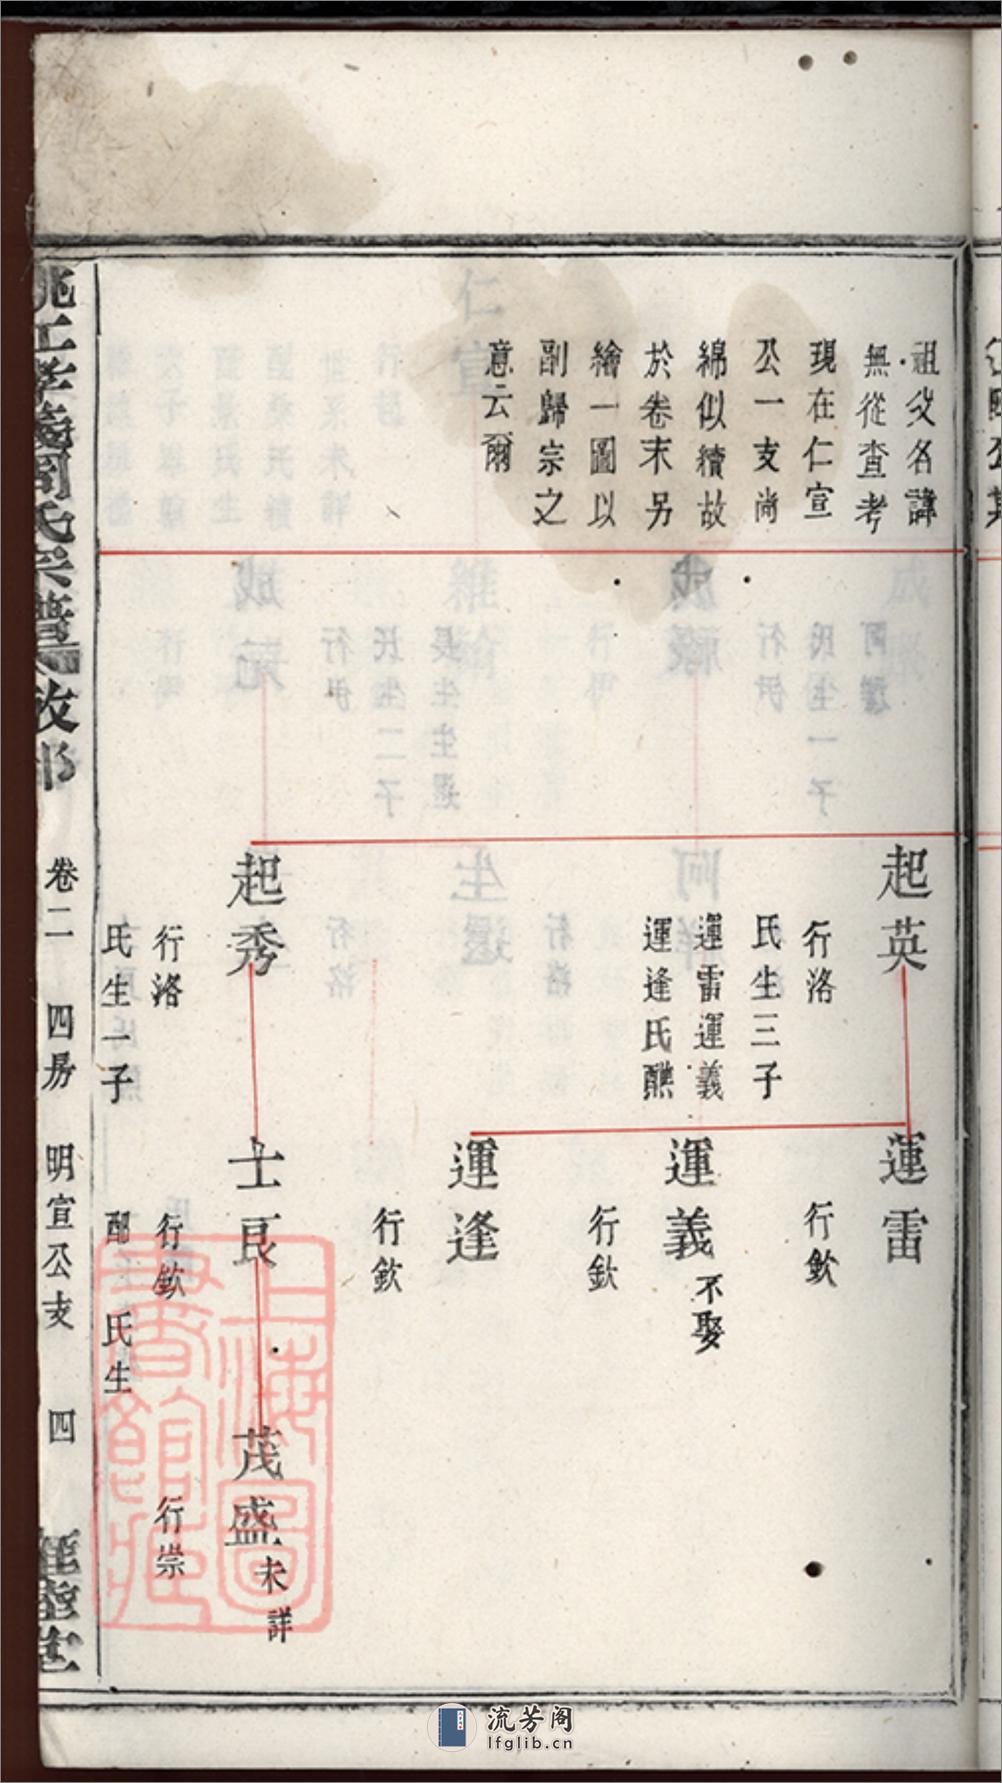 祖父名諱
無從查考
現在仁宣
公一支尚
綿似續故
於卷末另
繪一圖以
副歸宗之
意云爾
起英
行洛
氏生三子
運雷運義
運逢氏醮
起秀
行洛
氏生一子
運雷
行欽
運義不娶
行欽
運逢
行欽
士良
行欽
氏生
茂盛未詳
行崇
周氏宗譜
卷二 四房 明宣公支 四
上海圖書館藏
流芳阁
lfglib.cn